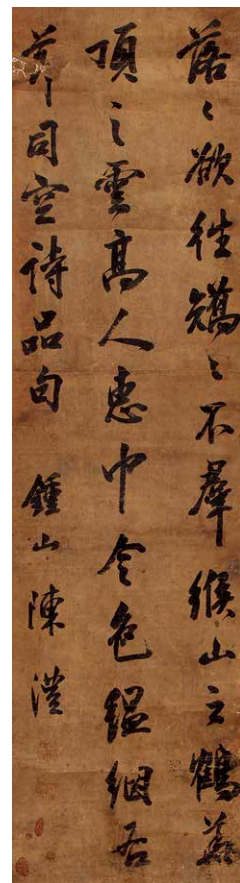 落々欲往矯々不羣緱山之鶴華
頂之雲高人惠中令色氤氳若
節司空詩品句 鍾山陳澧